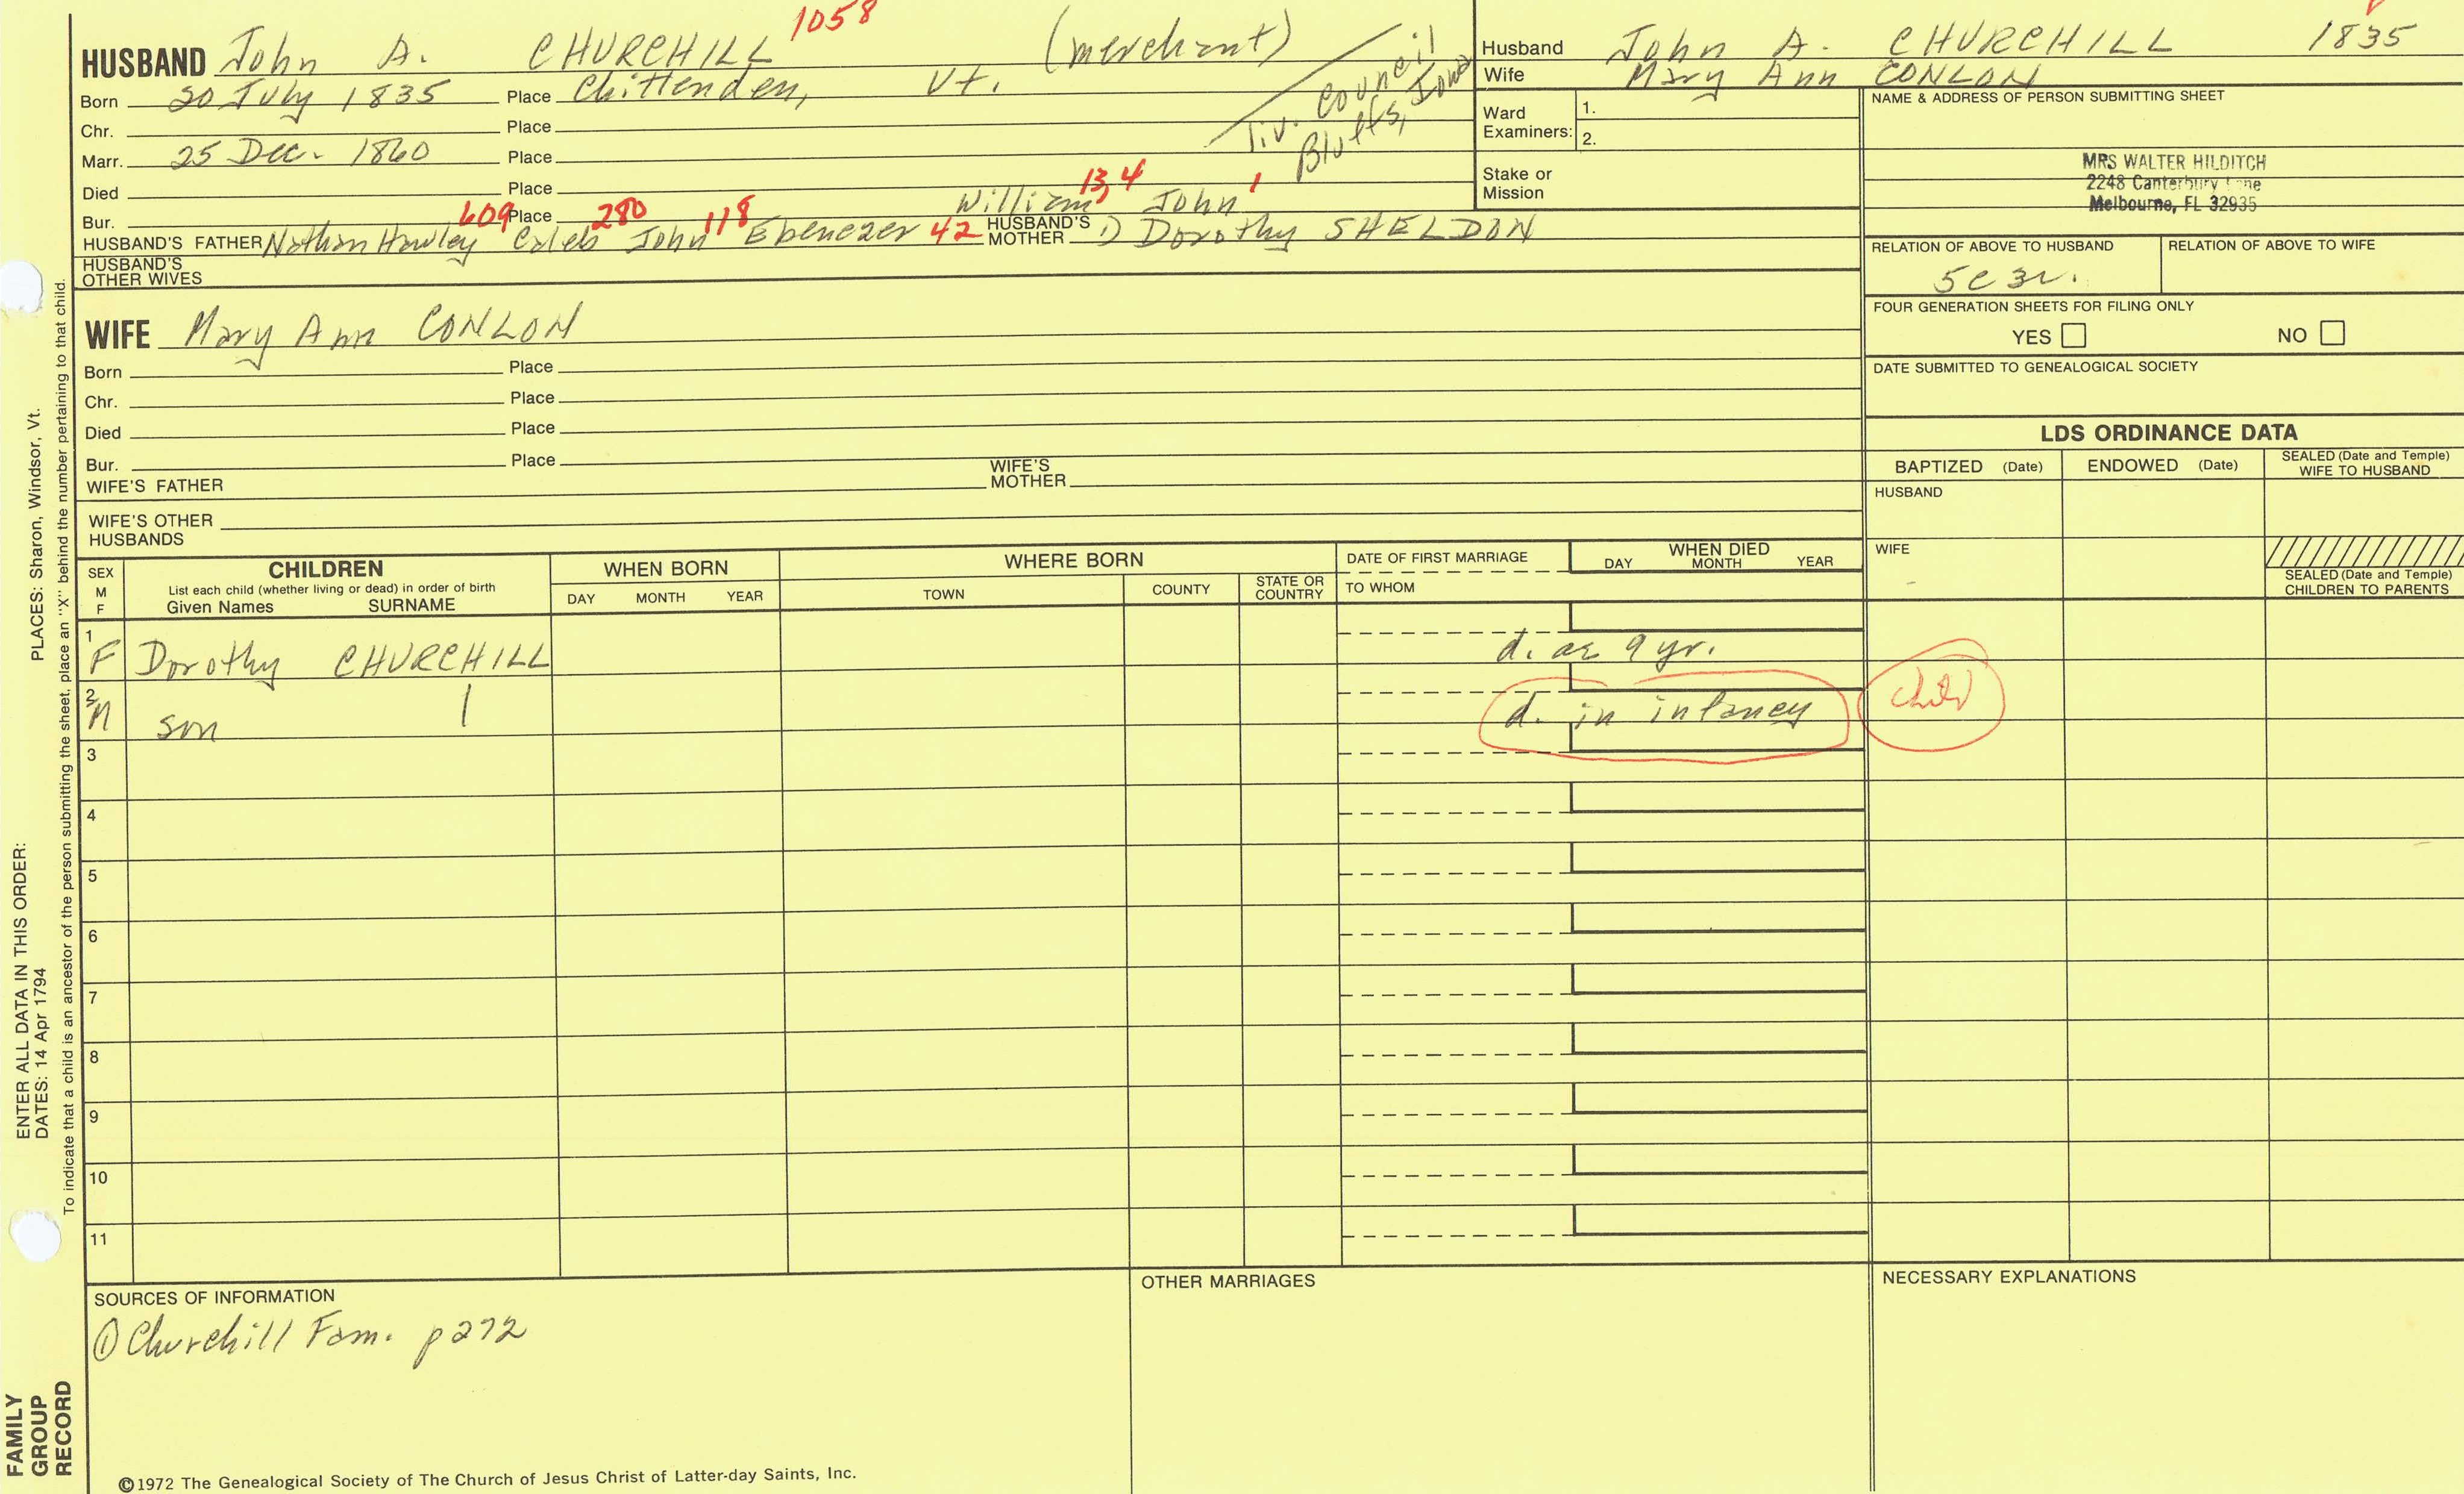 1058
HUSBAND John A. CHURCHILL (merchant)
Born 20 July 1835 Place Chittenden, Vt.
liv. Council Bluffs, Iowa
Chr. Place
Marr. 25 Dec. 1860 Place
Died Place
Bur. Place
William 13,4 John 1
609 280 118
HUSBAND'S FATHER Nathan Hawley Caleb John Ebenezer 42 HUSBAND'S MOTHER 1) Dorothy SHELDON
HUSBAND'S OTHER WIVES
WIFE Mary Ann CONLON
Born Place
Chr. Place
Died Place
Bur. Place
WIFE'S FATHER WIFE'S MOTHER
WIFE'S OTHER HUSBANDS
Husband John A. CHURCHILL 1835
Wife Mary Ann CONLON
Ward Examiners: 1.
2.
Stake or Mission
NAME & ADDRESS OF PERSON SUBMITTING SHEET
MRS WALTER HILDITCH
2248 Canterbury Lane
Melbourne, FL 32935
RELATION OF ABOVE TO HUSBAND RELATION OF ABOVE TO WIFE
5c3r.
FOUR GENERATION SHEETS FOR FILING ONLY
YES NO
DATE SUBMITTED TO GENEALOGICAL SOCIETY
LDS ORDINANCE DATA
BAPTIZED (Date) ENDOWED (Date) SEALED (Date and Temple) WIFE TO HUSBAND
HUSBAND
WIFE
SEALED (Date and Temple) CHILDREN TO PARENTS
SEX M F
CHILDREN
List each child (whether living or dead) in order of birth
Given Names SURNAME
WHEN BORN
DAY MONTH YEAR
WHERE BORN
TOWN COUNTY STATE OR COUNTRY
DATE OF FIRST MARRIAGE
TO WHOM
WHEN DIED
DAY MONTH YEAR
1 F Dorothy CHURCHILL d. ae 9 yr.
2 M son | d. in infancy child
3
4
5
6
7
8
9
10
11
SOURCES OF INFORMATION
① Churchill Fam. p272
OTHER MARRIAGES
NECESSARY EXPLANATIONS
©1972 The Genealogical Society of The Church of Jesus Christ of Latter-day Saints, Inc.
FAMILY GROUP RECORD
ENTER ALL DATA IN THIS ORDER:
DATES: 14 Apr 1794
PLACES: Sharon, Windsor, Vt.
To indicate that a child is an ancestor of the person submitting the sheet, place an "X" behind the number pertaining to that child.